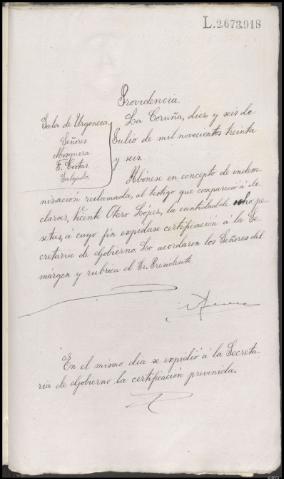 L.2673,918
Providencia
Sala de Urgencia
Señores
Mosquera
F. Cortes
Salgado
La Coruña, diez y seis de
Julio de mil novecientos treinta
y seis
Abónese en concepto de indem
nización reclamada, al testigo que compareció á de
clarar, Vicente Otero López, la cantidad de ocho pe
setas, á cuyo fin expídase certificación á la Se
cretaría de Gobierno. Lo acordaron los Señores del
margen y rubrica el Sr. Presidente
En el mismo dia se expidió á la Secreta
ria de Gobierno la certificación prevenida.